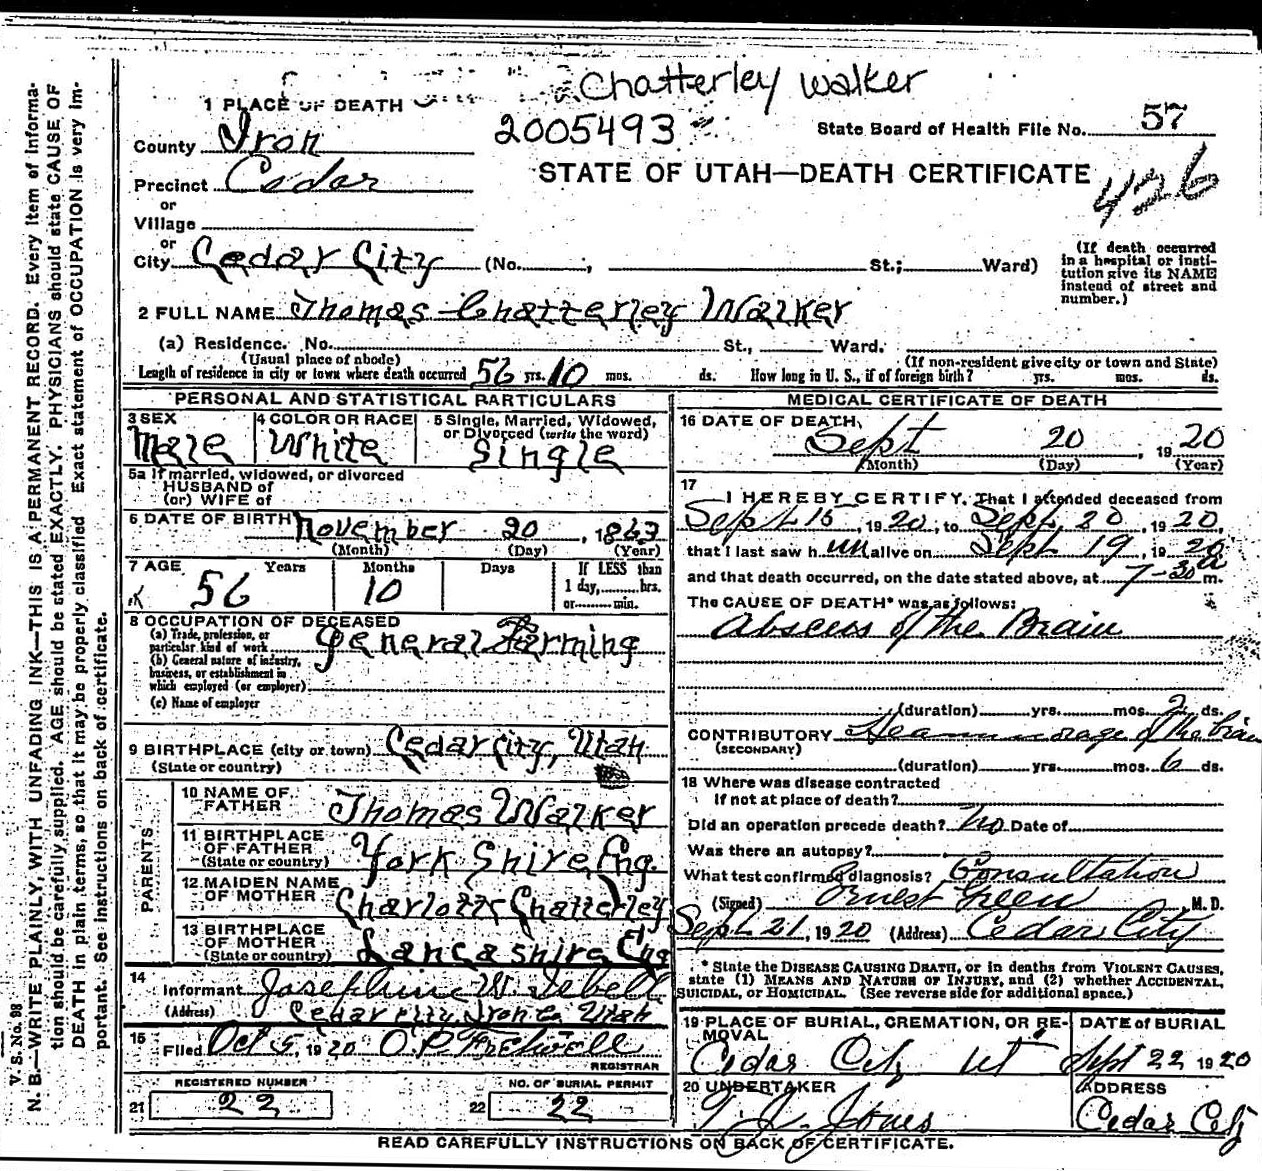 Chatterley Walker
2005493
1 PLACE OF DEATH
State Board of Health File No. 57
County Iron
STATE OF UTAH—DEATH CERTIFICATE
426
Precinct Cedar
or
Village
or
City Cedar City (No. , St.; Ward)
(If death occurred in a hospital or institution give its NAME instead of street and number.)
2 FULL NAME Thomas Chatterley Walker
(a) Residence. No. St., Ward.
(Usual place of abode) (If non-resident give city or town and State)
Length of residence in city or town where death occurred 56 yrs. 10 mos. ds. How long in U. S., if of foreign birth? yrs. mos. ds.
PERSONAL AND STATISTICAL PARTICULARS
3 SEX
Male
4 COLOR OR RACE
White
5 Single, Married, Widowed, or Divorced (write the word)
Single
5a If married, widowed, or divorced
HUSBAND of
(or) WIFE of
6 DATE OF BIRTH November 20, 1863
(Month) (Day) (Year)
7 AGE Years Months Days If LESS than
56 10 1 day, hrs.
or min.
8 OCCUPATION OF DECEASED
(a) Trade, profession, or particular kind of work General Farming
(b) General nature of industry, business, or establishment in which employed (or employer)
(c) Name of employer
9 BIRTHPLACE (city or town) Cedar City, Utah
(State or country)
PARENTS
10 NAME OF FATHER Thomas Walker
11 BIRTHPLACE OF FATHER (State or country) York Shire Eng.
12 MAIDEN NAME OF MOTHER Charlotte Chatterley
13 BIRTHPLACE OF MOTHER (State or country) Lancashire Eng
14 Informant Josephine W.
(Address) Cedar City Iron Co. Utah
15 Filed Oct 5, 1920 O.P. Fretwell
REGISTRAR
REGISTERED NUMBER
21 22
NO. OF BURIAL PERMIT
22 22
MEDICAL CERTIFICATE OF DEATH
16 DATE OF DEATH
Sept 20, 1920
(Month) (Day) (Year)
17
I HEREBY CERTIFY, That I attended deceased from
Sept 15, 1920, to Sept. 20, 1920,
that I last saw him alive on Sept 19, 1920
and that death occurred, on the date stated above, at 7-30 a m.
The CAUSE OF DEATH* was as follows:
Abscess of the Brain
(duration) yrs. mos. 2 ds.
CONTRIBUTORY Heammorage of the brain
(SECONDARY)
(duration) yrs. mos. 6 ds.
18 Where was disease contracted
If not at place of death?
Did an operation precede death? No Date of
Was there an autopsy?
What test confirmed diagnosis? Consultation
(Signed) Ernest Green, M. D.
Sept 21, 1920 (Address) Cedar City
* State the DISEASE CAUSING DEATH, or in deaths from VIOLENT CAUSES,
state (1) MEANS AND NATURE OF INJURY, and (2) whether ACCIDENTAL,
SUICIDAL, or HOMICIDAL. (See reverse side for additional space.)
19 PLACE OF BURIAL, CREMATION, OR REMOVAL
Cedar City Ut
DATE of BURIAL
Sept 22 1920
20 UNDERTAKER
Jones
ADDRESS
Cedar City
READ CAREFULLY INSTRUCTIONS ON BACK OF CERTIFICATE.
V. S. No. 98
N. B.—WRITE PLAINLY, WITH UNFADING INK—THIS IS A PERMANENT RECORD. Every item of information should be carefully supplied. AGE should be stated EXACTLY. PHYSICIANS should state CAUSE OF DEATH in plain terms, so that it may be properly classified. Exact statement of OCCUPATION is very important. See instructions on back of certificate.